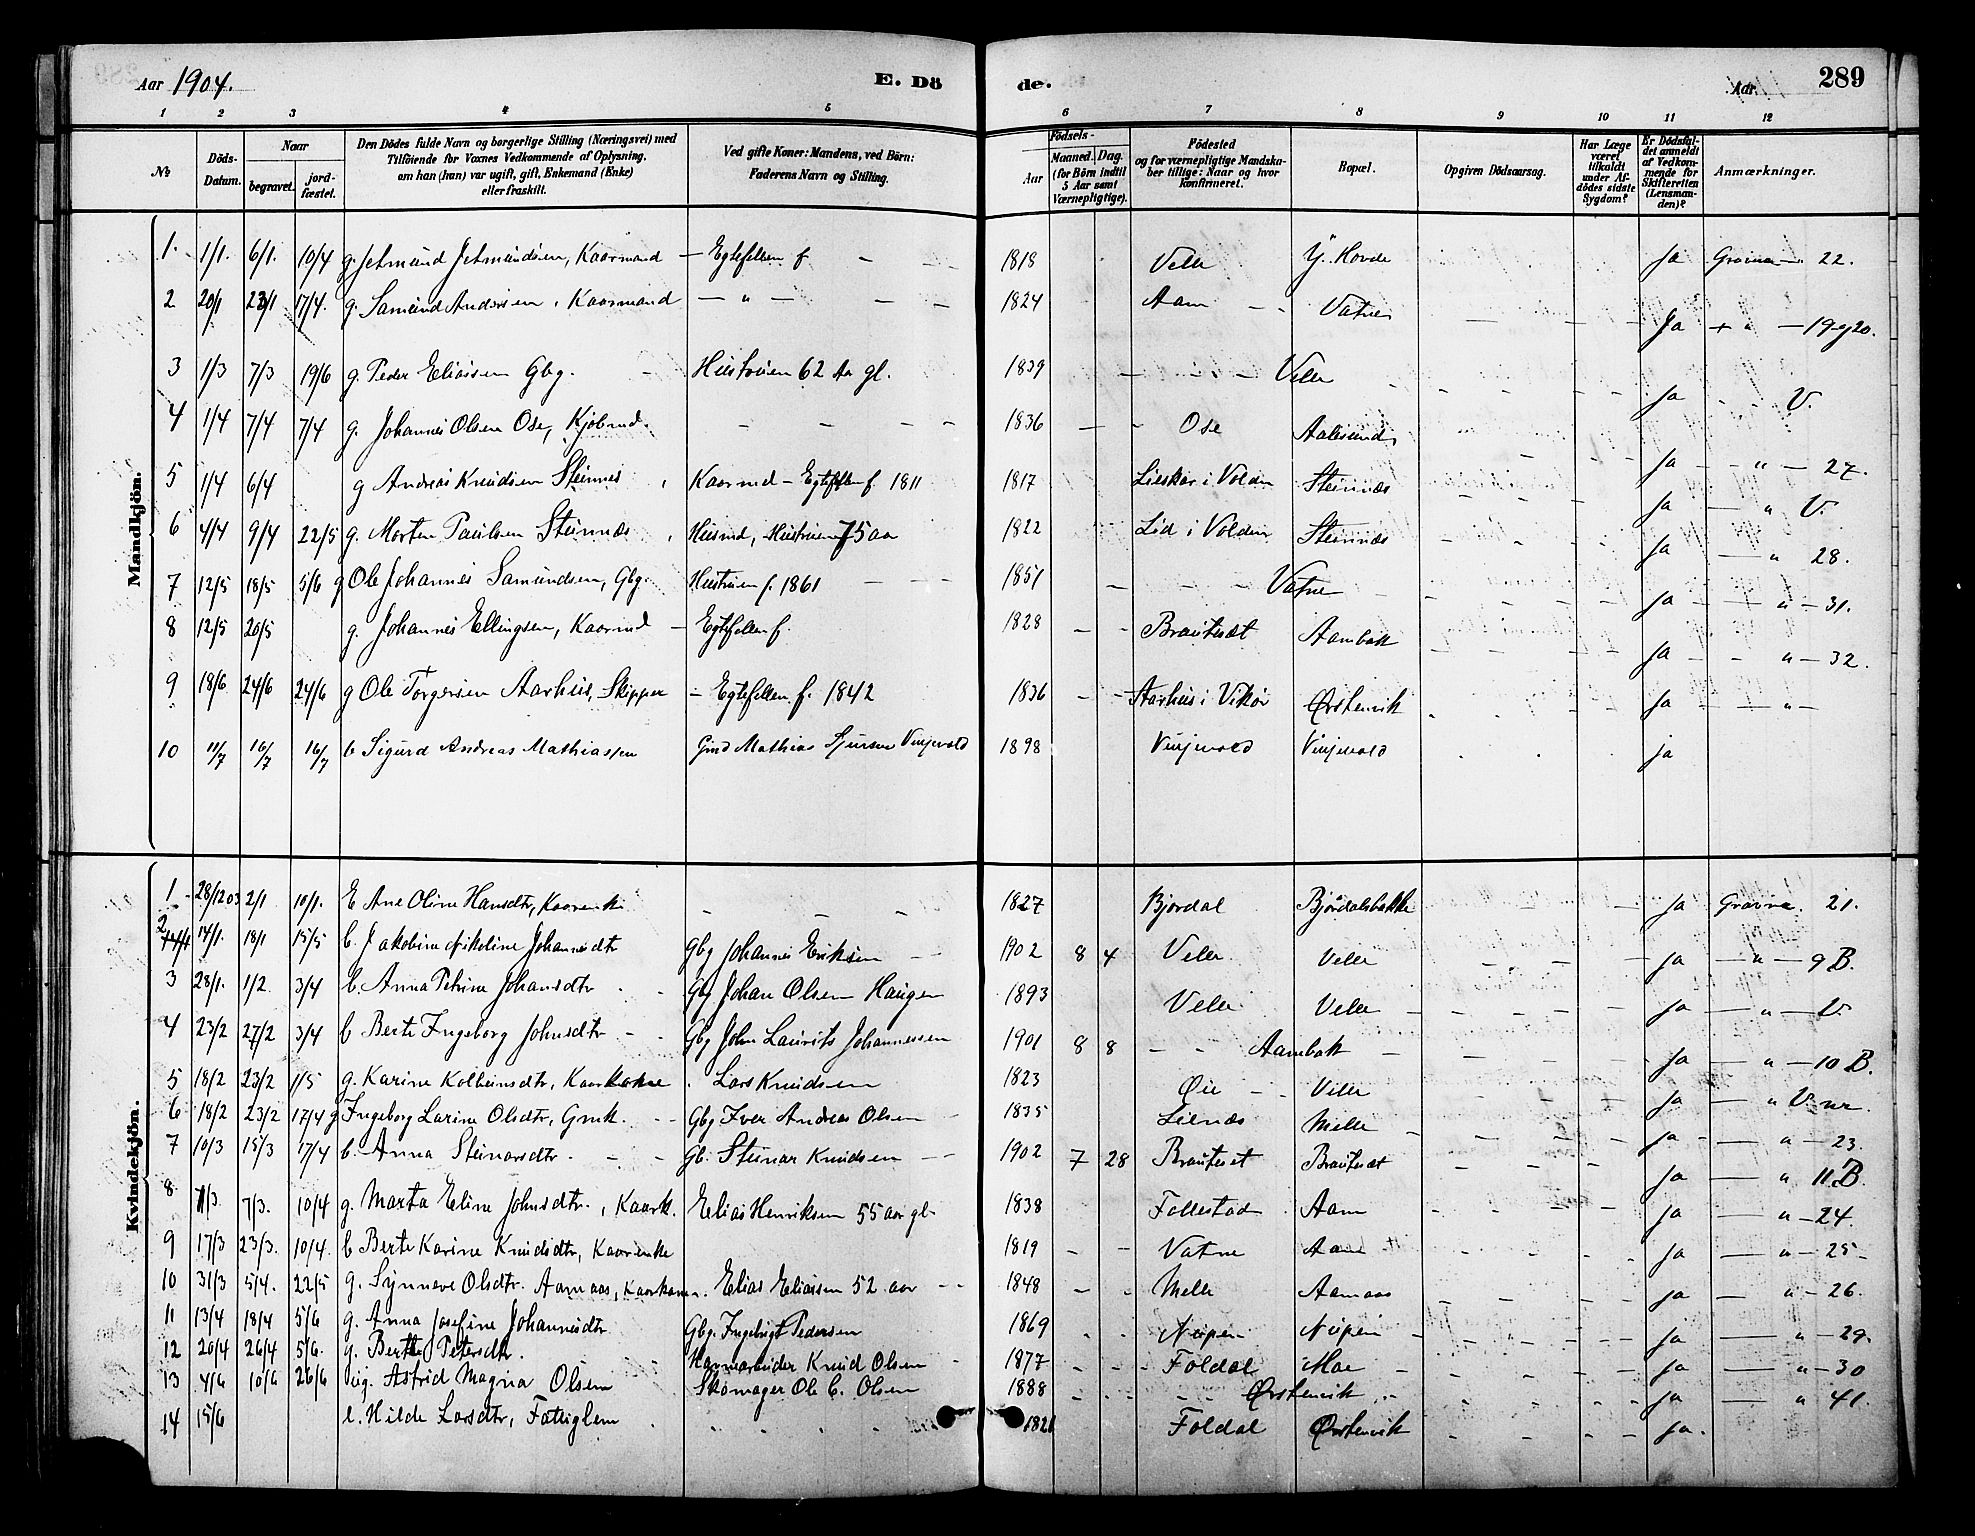 Aar 1904. E. Dö de. Aar 289
1 2 3 4 5 6 7 8 9 10 11 12
№ Döds-Datum. Naar begravet. jord-fæstet. Den Dödes fulde Navn og borgerlige Stilling (Næringsvei) med Tilföiende for Voxnes Vedkommende af Oplysning, om han (hun) var ugift, gift, Enkemand (Enke) eller fraskilt. Ved gifte Koner: Mandens, ved Börn: Faderens Navn og Stilling. Födsels- Aar Maaned. Dag. (for Börn indtil 5 Aar samt Værnepligtige). Födested og for værnepligtige Mandskaber tillige: Naar og hvor konfirmeret. Bopæl. Opgiven Dödsaarsag. Har Læge været tilkaldt under Afdödes sidste Sygdom? Er Dödsfaldet anmeldt af Vedkommende for Skifteretten (Lensmanden)? Anmærkninger.
Mandkjön.
1. 1/1. 6/1. 10/4 g. Jetmund Jetmundsen, Kaarmand — Egtefellen f 1818 Velle Y. Hovde Ja Gravna — 22.
2 20/1 23/1 17/4. g. Samund Andersen, Kaarmand — " — 1824 Aam Vatne Ja + " — 19 og 20.
3 1/3 7/3 19/6 g. Peder Eliassen Gbg. Hustruen 62 Aa gl. 1839 Velle Ja V.
4 1/4 7/4 7/4 g. Johannes Olsen Ose, Kjøbmd. 1836 Ose Aalesund Ja " — 27.
5 1/4 6/4 g Andreas Knudsen Steinnes Kaarmd — Egtefellen f 1811 1817 Lieskar i Volden Steinnæs Ja — " V.
6 4/4 9/4 22/5 g. Morten Paulsen Steinnæs, Husmd, Hustruen 75 aar 1822 Lid i Volden Steinnæs Ja — " 28.
7 12/5 18/5 5/6 g Ole Johannes Samundsen, Gbg. Hustruen f. 1861 1851 Vatne Ja " — 31.
8 12/5 20/5 g. Johannes Ellingsen, Kaarmd — Egtefellen f. 1828 Brautesæt Aambakk Ja " — 32.
9 18/6 24/6 24/6 g Ole Torgersen Aarhus, Skipper — Egtefellen f. 1842 1836 Aarhus i Vikør Ørstenvik Ja — " —
10 11/7 16/7 16/7 b Sigurd Andreas Mathiassen Gmd Mathias Sjursen Vinjevold 1898 Vinjevold Vinjevold ja
Kvindekjön.
1 28/12 03 2/1 10/1. E Ane Oline Hansdtr, Kaarenke 1827 Bjordal Bjørdalsbakke Ja Gravna 21.
2 14/1. 18/1 15/5 b. Jakobine Nikoline Johannesdtr Gbg Johannes Eriksen 1902 8 4 Velle Velle Ja — " — 9 B.
3 28/1. 1/2. 3/4 b. Anna Petrine Johansdtr Gbg Johan Olsen Haugen 1893 Velle Velle Ja — " — V.
4 23/2 27/2 3/4 b Berte Ingeborg Johnsdtr Gbg John Laurits Johannessen 1901 8 8 Aambakk Ja — " — 10 B.
5 18/2 23/2 1/5 g. Karine Kolbeinsdtr, Kaarkone Lars Knudsen 1823 Øie Velle Ja — " V.
6 18/2 23/2 17/4 g Ingeborg Larine Olsdtr, Gmk. Gbg Iver Andreas Olsen 1835 Lienæs Melle Ja — " — 23.
7 10/3 15/3 17/4 b. Anna Steinarsdtr Gb. Steinar Knudsen 1902 7 28 Brauteset Brautesæt Ja — " 11 B.
8 1/3 7/3. 10/4 g. Marta Eline Johnsdtr, Kaark. Elias Henriksen 55 aar gl. 1838 Follestad Aam Ja — " — 24.
9 17/3 23/3. 10/4. b Berte Karine Knudsdtr, Kaarenke 1819 Vatne Aam Ja — " — 25
10 31/3 5/4. 22/5 g. Synneve Olsdtr. Aamaas, Kaarkone. Elias Eliassen 52 aar 1848 Melle Aamaas Ja — " — 26.
11 13/4 18/4 5/6 g. Anna Josefine Johannesdtr Gbg. Ingebrigt Pedersen 1869 Nupen Nupen Ja — " — 29.
12 20/4 26/4 5/6. g. Berthe Petersdtr. Havnearbeider Knud Olsen 1877 Foldal Moe Ja — " — 30
13 4/6 10/6 26/6 ug. Astrid Magna Olsen Skomager Ole C. Olsen 1888 Ørstenvik Ja — " 41.
14 15/6 e. Hilde Larsdtr, Fattiglem 1821 Foldal Ørstenvik Ja.